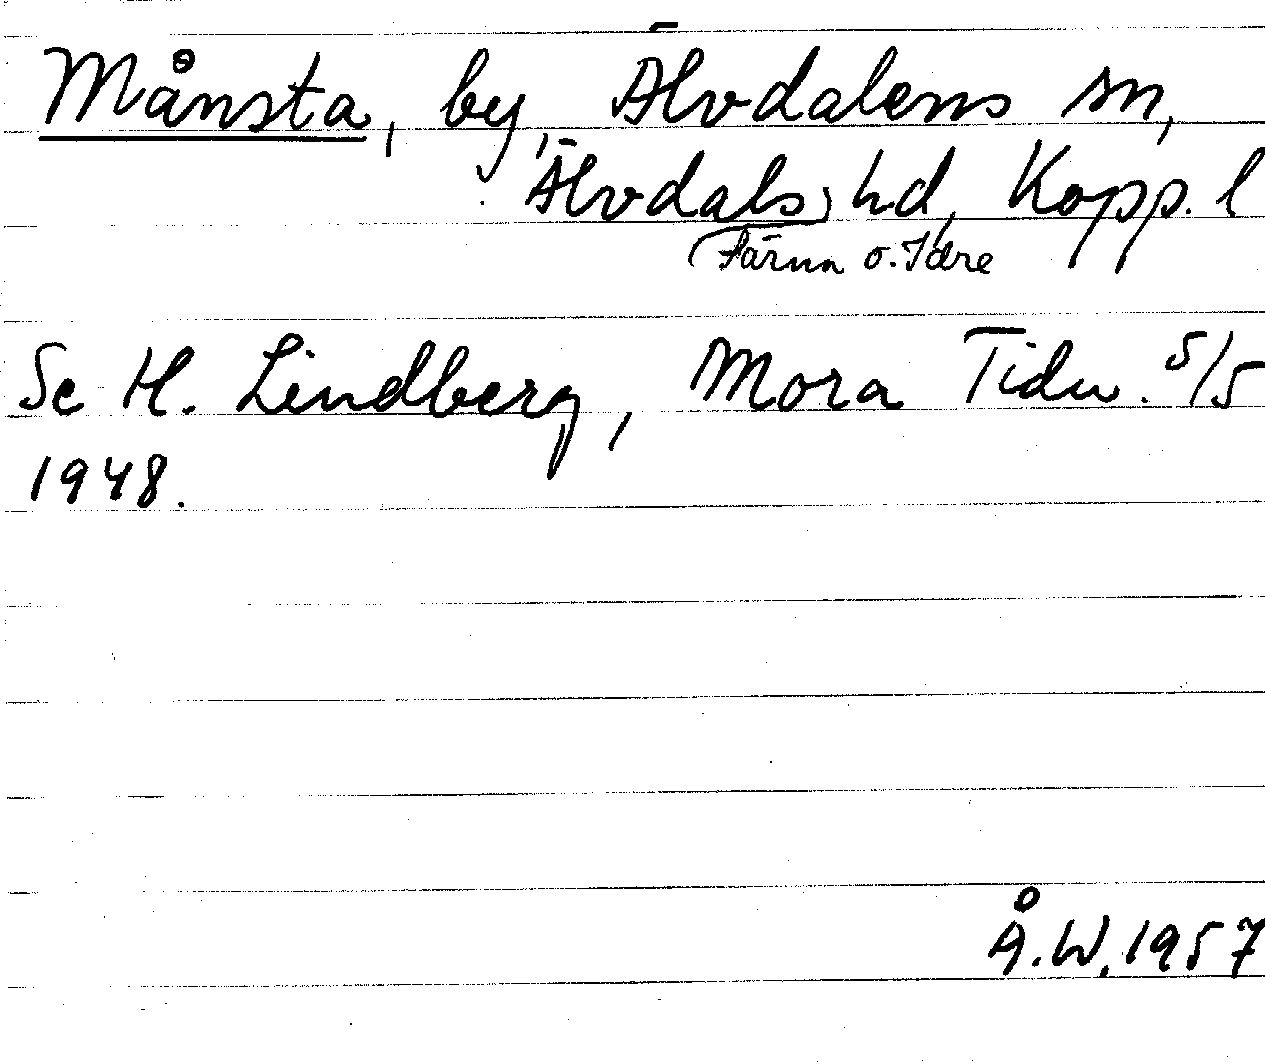 Månsta, by, Älvdalens sn,
Älvdals, hd, Kopp. l
(Särna o. Idre
Se H. Lindberg, Mora Tidn. 5/5
1948.
Å.W. 1957